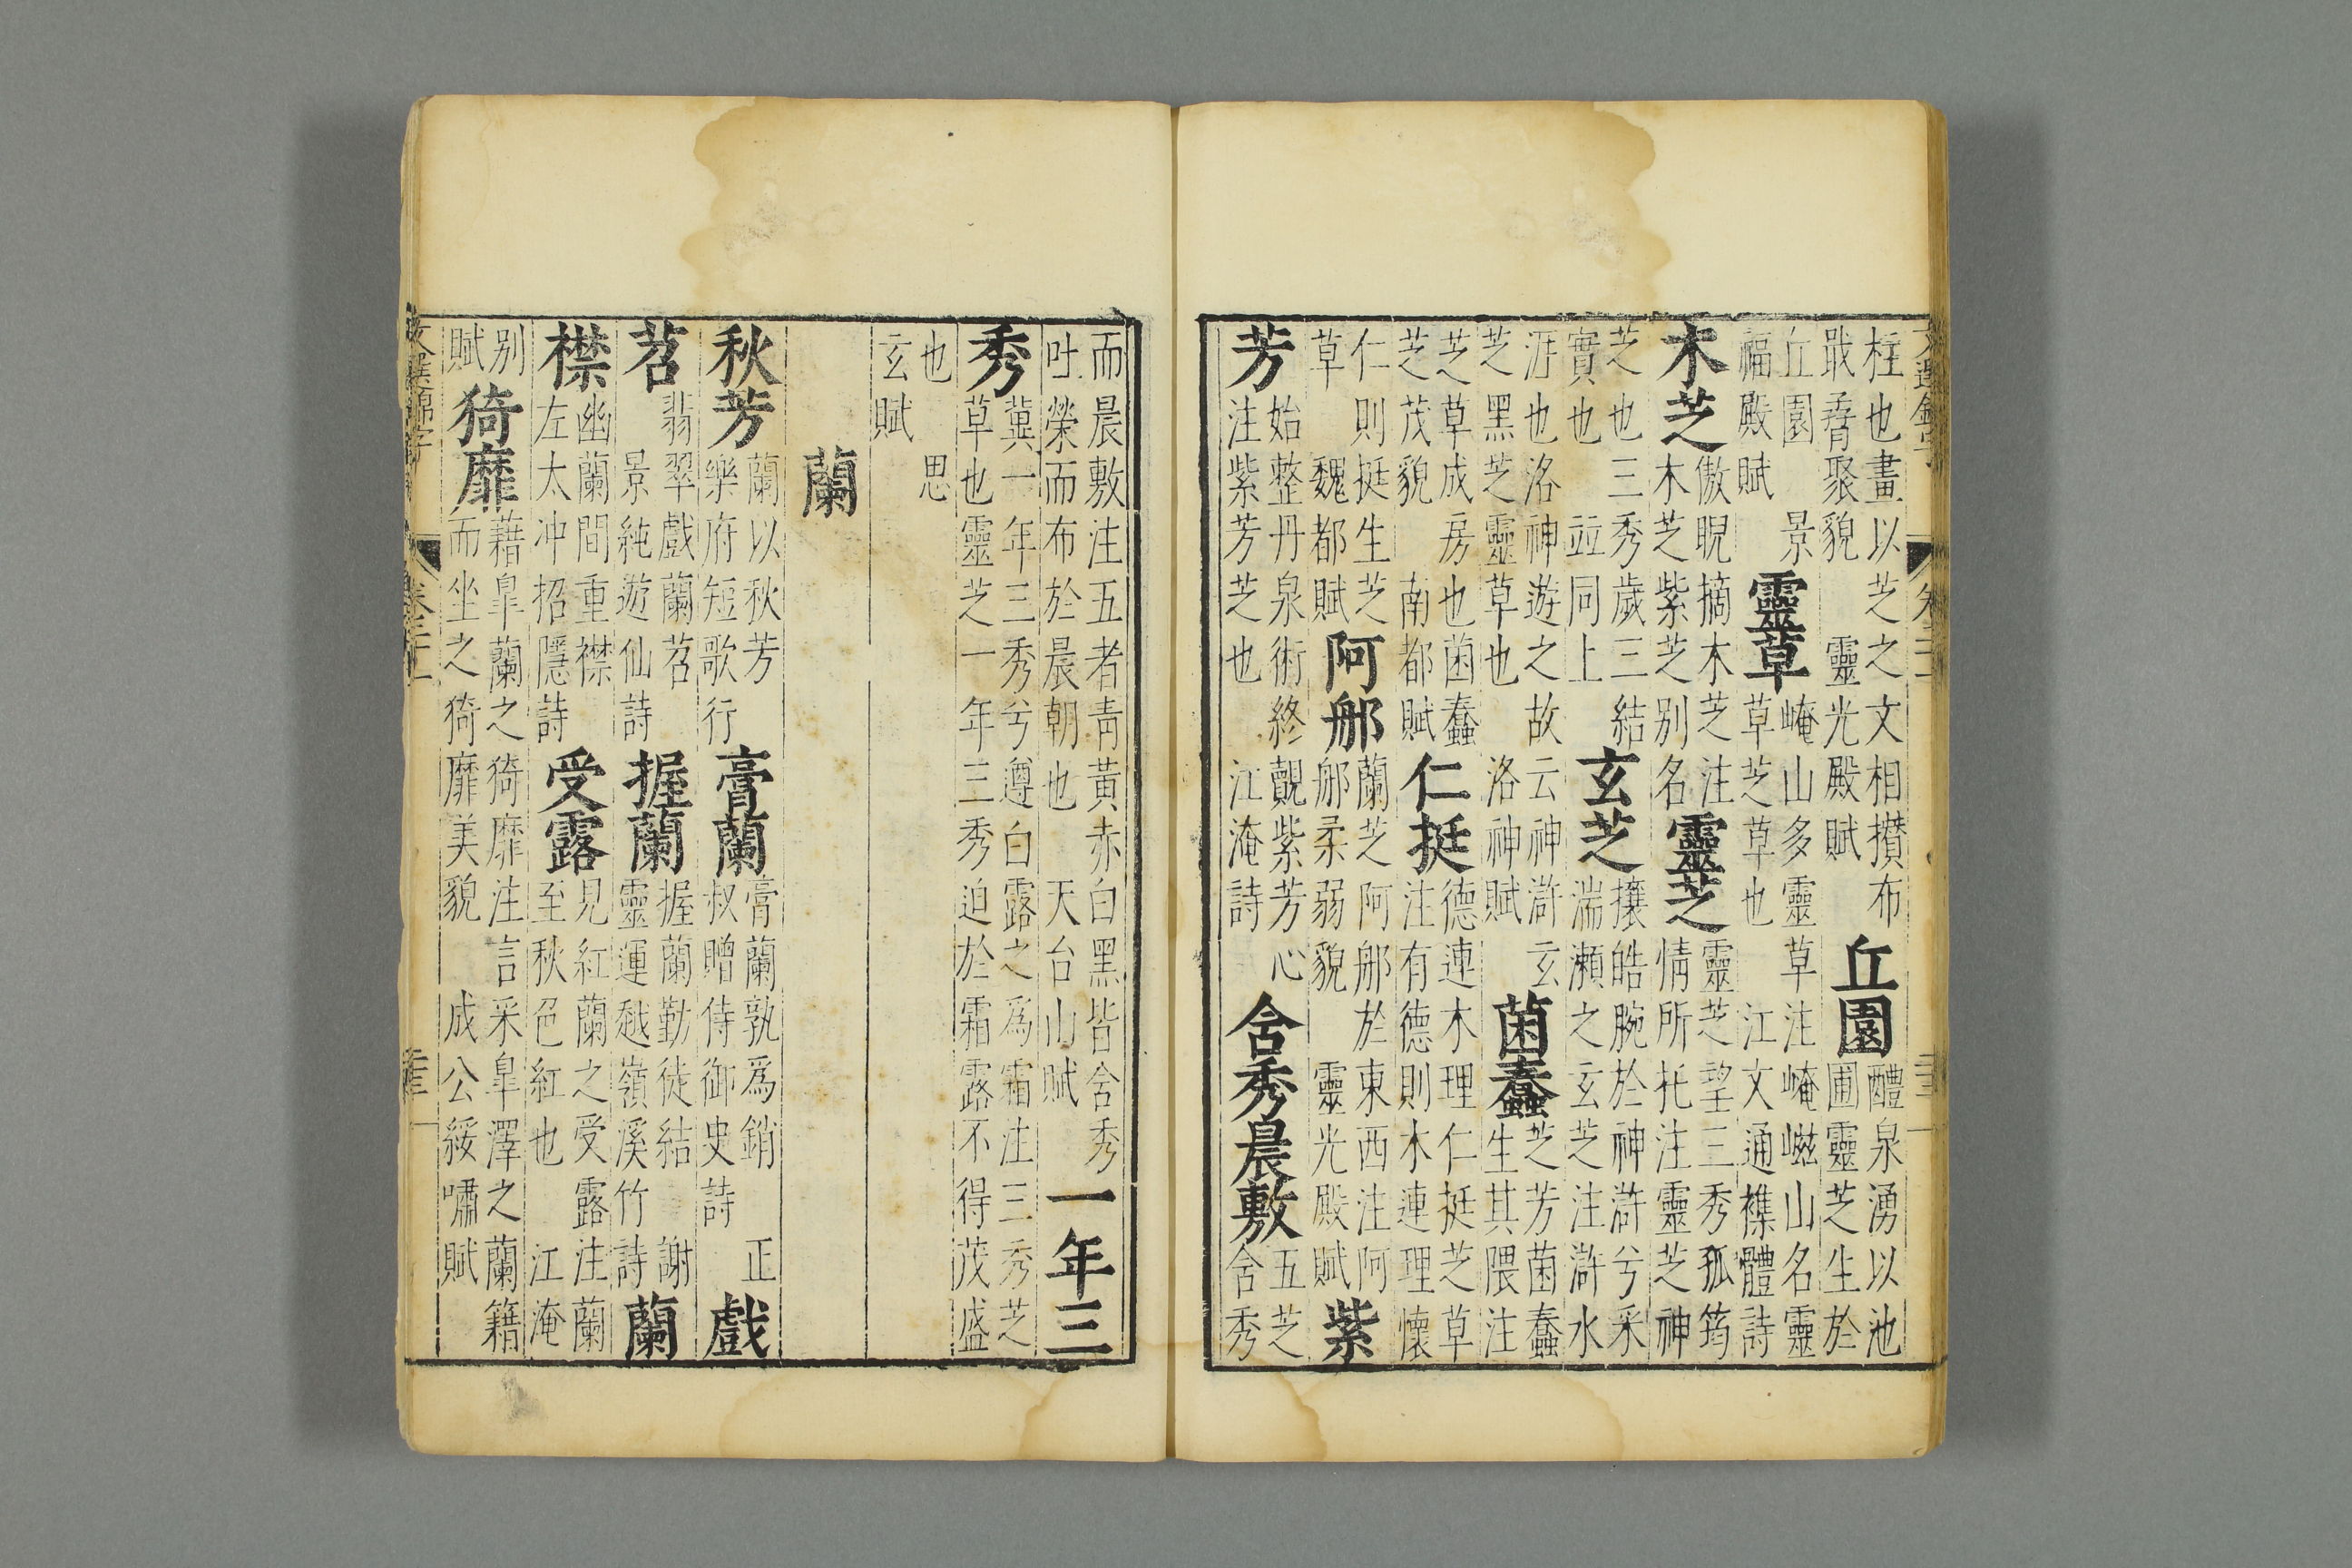 柱也畫以芝之文相攅布
戢孴聚貌 靈光殿賦
丘園
醴泉湧以池
圃靈芝生於
丘園 景
福殿賦
靈草
崦山多靈草注崦嵫山名靈
草芝草也 江文通襍體詩
木芝
傲睨摘木芝注
木芝紫芝别名
靈芝
靈芝望三秀孤筠
情所托注靈芝神
芝也三秀歲三結
實也 並同上
玄芝
攘皓腕於神滸兮采
湍瀬之玄芝注滸水
涯也洛神遊之故云神滸 玄
芝黑芝靈草也 洛神賦
菌蠢
芝芳菌蠢
生其隈注
芝草成房也菌蠢
芝茂貌 南都賦
仁挺
德連木理仁挺芝草
注有德則木連理懷
仁則挺生芝
草 魏都賦
阿那
蘭芝阿那於東西注阿
那柔弱貌 靈光殿賦
紫
芳
始整丹泉術終覿紫芳心
注紫芳芝也 江淹詩
含秀晨敷
五芝
含秀
而晨敷注五者青黃赤白黑皆含秀
吐榮而布於晨朝也 天台山賦
一年三
秀
冀一年三秀兮遵白露之爲霜注三秀芝
草也靈芝一年三秀迫於霜露不得茂盛
也 思
玄賦
蘭
秋芳
蘭以秋芳
樂府短歌行
膏蘭
膏蘭孰爲銷 正
叔贈侍御史詩
戲蘭
苕
翡翠戲蘭苕
景純遊仙詩
握蘭
握蘭勤徒結 謝
靈運越嶺溪竹詩
蘭
襟
幽蘭間重襟
左太冲招隱詩
受露
見紅蘭之受露注蘭
至秋色紅也 江淹
别
賦
猗靡
藉臯蘭之猗靡注言采臯澤之蘭籍
而坐之猗靡美貌 成公綏嘯賦